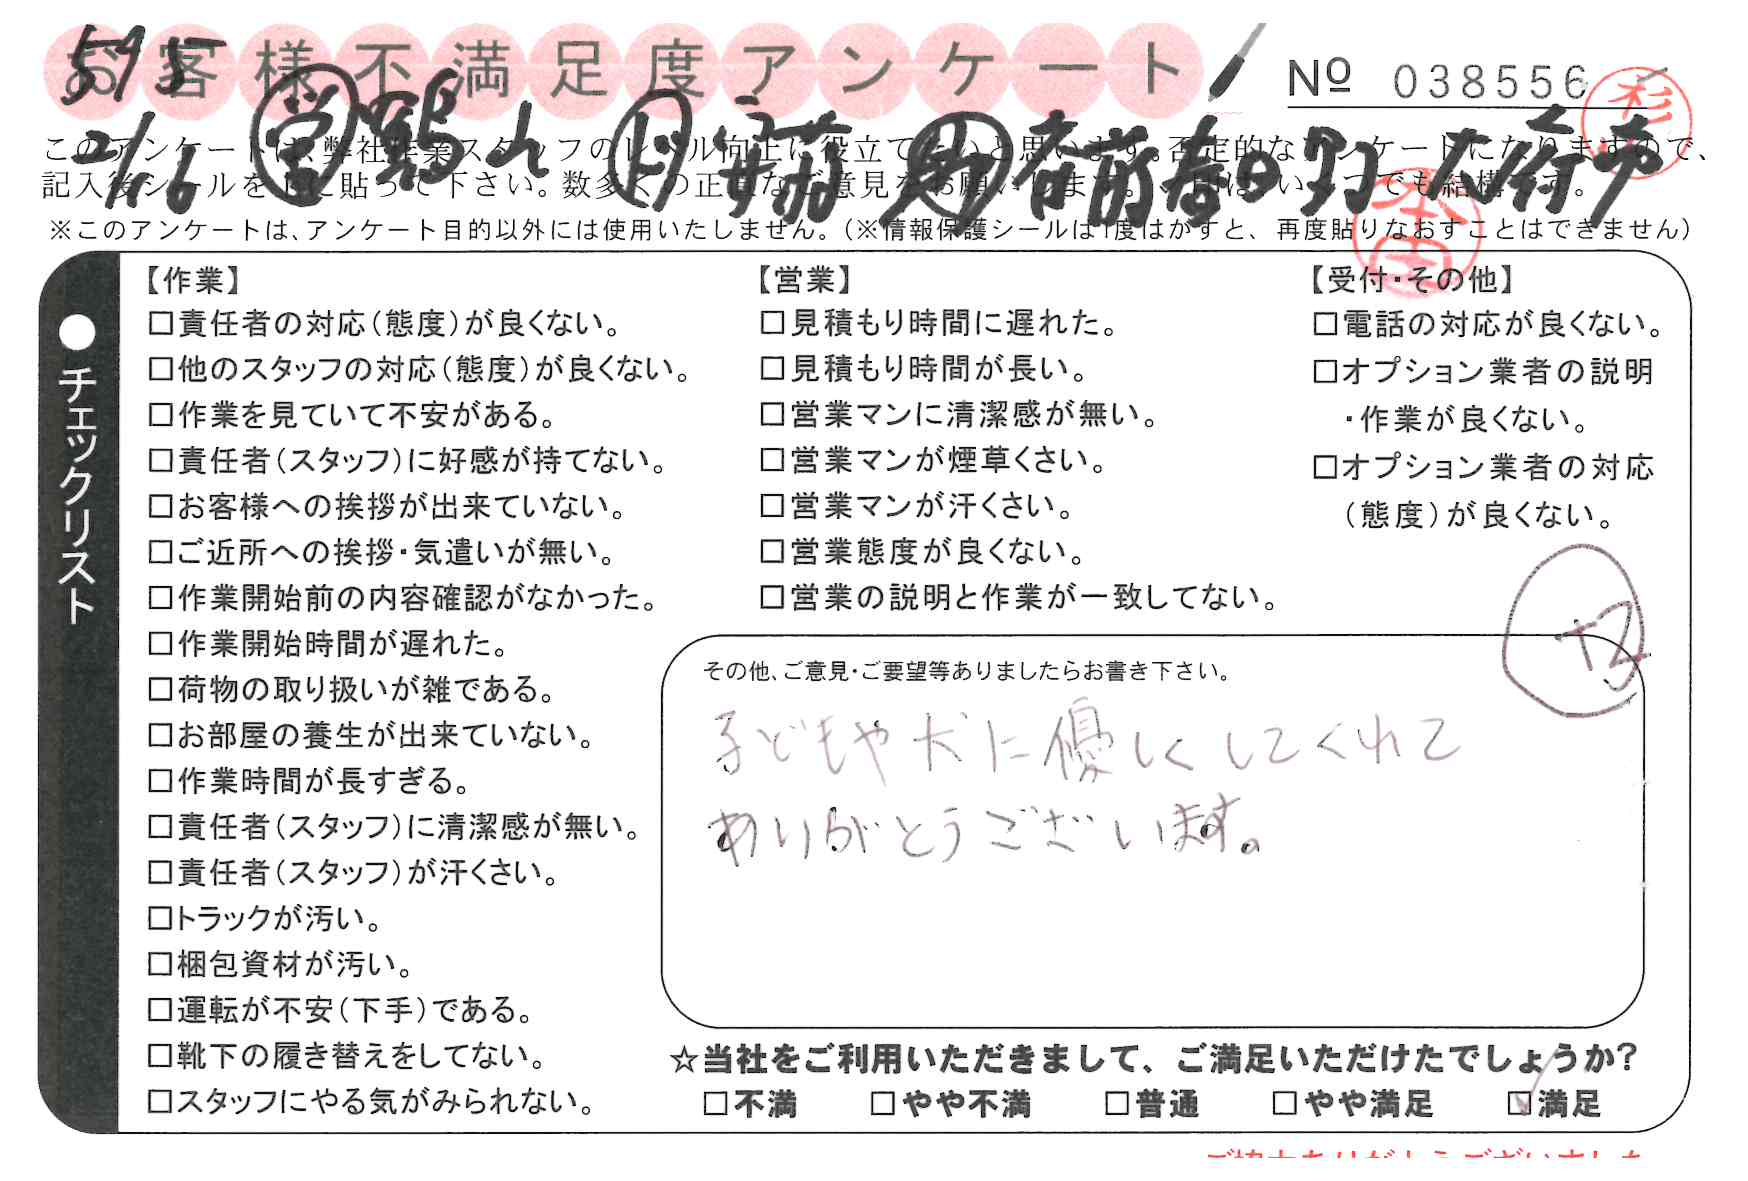 お客様不満足度アンケート
№ 038556
595
2/16 営 鶴山 ド 安藤
このアンケートは、弊社作業スタッフのレベル向上に役立てたいと思います。否定的なアンケートになりますので、
記入後シールを上に貼って下さい。数多くの正直なご意見をお願いします。
※このアンケートは、アンケート目的以外には使用いたしません。(※情報保護シールは1度はがすと、再度貼りなおすことはできません)
杉
●チェックリスト
【作業】
□責任者の対応(態度)が良くない。
□他のスタッフの対応(態度)が良くない。
□作業を見ていて不安がある。
□責任者(スタッフ)に好感が持てない。
□お客様への挨拶が出来ていない。
□ご近所への挨拶・気遣いが無い。
□作業開始前の内容確認がなかった。
□作業開始時間が遅れた。
□荷物の取り扱いが雑である。
□お部屋の養生が出来ていない。
□作業時間が長すぎる。
□責任者(スタッフ)に清潔感が無い。
□責任者(スタッフ)が汗くさい。
□トラックが汚い。
□梱包資材が汚い。
□運転が不安(下手)である。
□靴下の履き替えをしてない。
□スタッフにやる気がみられない。
【営業】
□見積もり時間に遅れた。
□見積もり時間が長い。
□営業マンに清潔感が無い。
□営業マンが煙草くさい。
□営業マンが汗くさい。
□営業態度が良くない。
□営業の説明と作業が一致してない。
【受付・その他】
□電話の対応が良くない。
□オプション業者の説明
・作業が良くない。
□オプション業者の対応
(態度)が良くない。
その他、ご意見・ご要望等ありましたらお書き下さい。
子どもや犬に優しくしてくれて
ありがとうございます。
☆当社をご利用いただきまして、ご満足いただけたでしょうか?
□不満 □やや不満 □普通 □やや満足 ☑満足
ご協力ありがとうございました